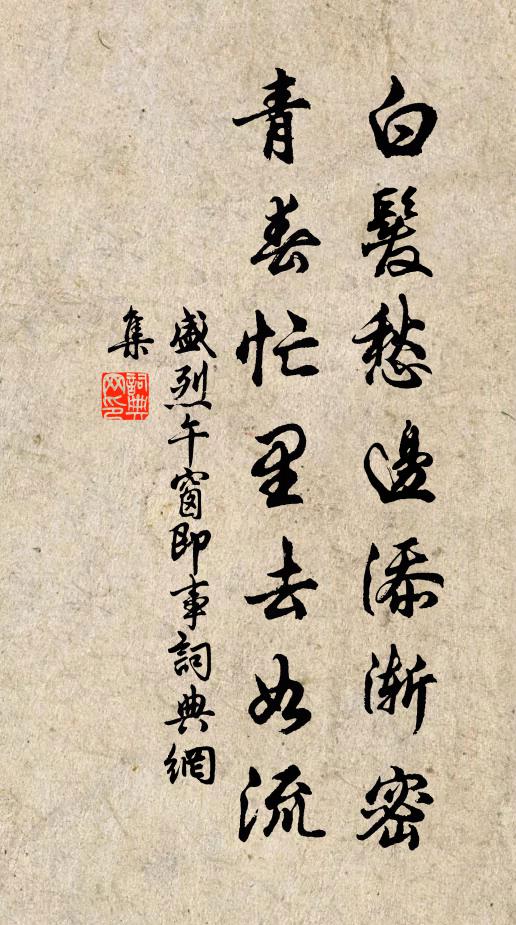 白髮愁邊添漸密
青春忙里去如流
盛烈午窗即事詞典網
集
詞典
网印